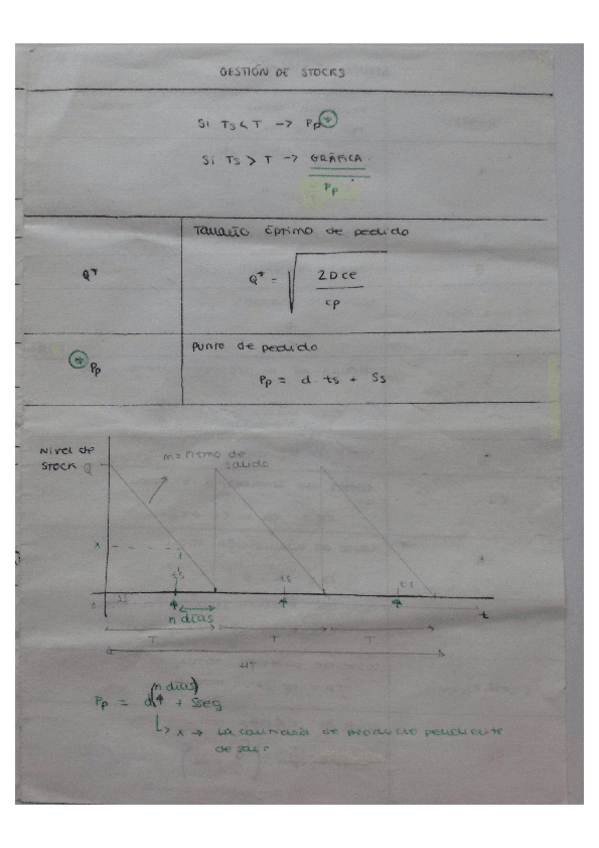 GESTIÓN DE STOCKS
Si Ts < T -> Pp *
Si Ts > T -> GRÁFICA
Pp
Q*
Tamaño óptimo de pedido
Q* = √ 2 D ce / cp
* Pp
Punto de pedido
Pp = d · ts + Ss
Nivel de
stock Q
m = ritmo de
salida
x
ts
ts
ts
0
SS
n días
t
T
T
T
HT
(n días)
Pp = d * + Sseg
↳ x → La cantidad de producto pendiente
de salir